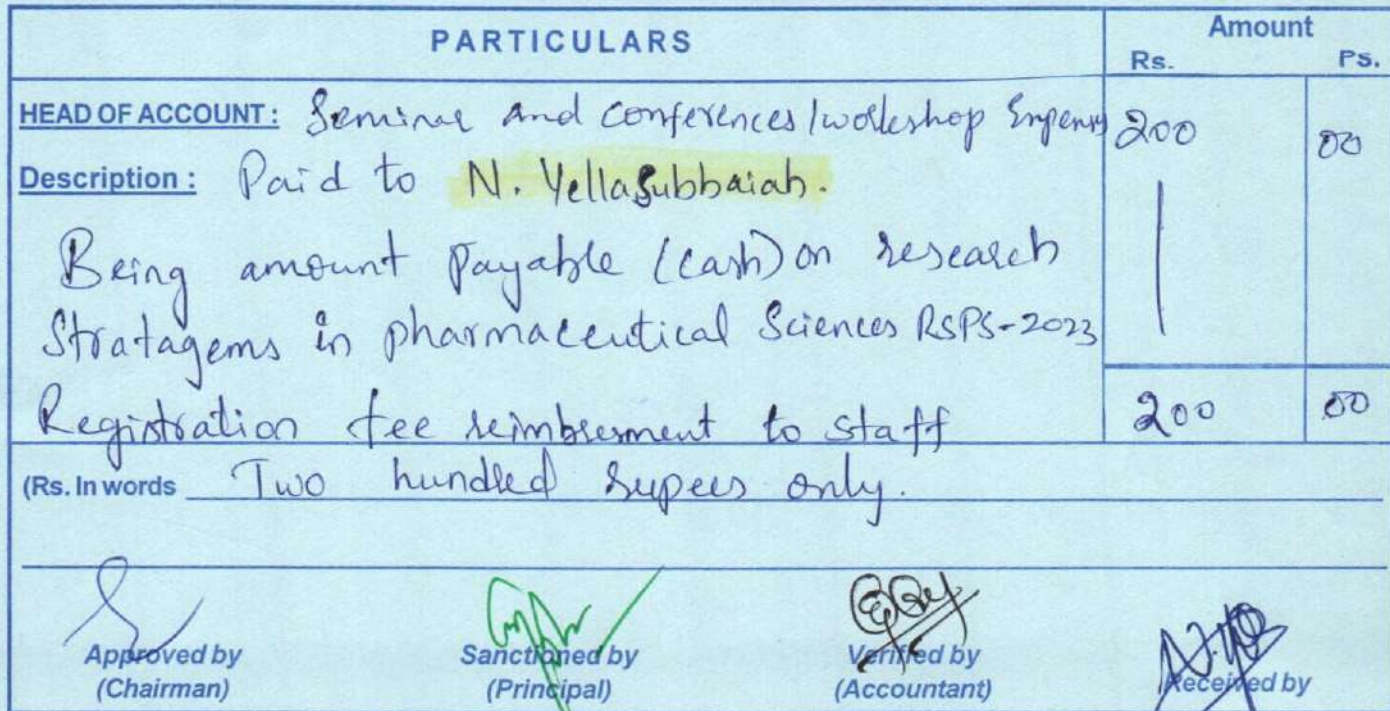 PARTICULARS Amount
Rs. Ps.
HEAD OF ACCOUNT : Seminar and conferences/workshop Expenses 200 00
Description : Paid to N. YellaSubbaiah.
Being amount payable (cash) on research
Stratagems in pharmaceutical Sciences RSPS-2023
Registration fee reimbresment to staff 200 00
(Rs. In words Two hundred rupees only.
Approved by Sanctioned by Verified by Received by
(Chairman) (Principal) (Accountant)